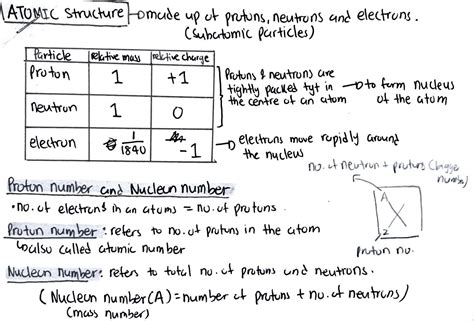 ATOMIC Structure → made up of protons, neutrons and electrons.
(Subatomic Particles)
Particle relative mass relative charge
Proton 1 +1
neutron 1 0
electron 1/1840 -1
Protons & neutrons are
tightly packed tgt in → to form nucleus
the centre of an atom of the atom
→ electrons move rapidly around
the nucleus
no. of neutron + protons (bigger
number)
A
X
Z
Proton no.
Proton number and Nucleon number
• no. of electrons in an atoms = no. of protons.
Proton number: refers to no. of protons in the atom
↳ also called atomic number
Nucleon number: refers to total no. of protons and neutrons.
(Nucleon number (A) = number of protons + no. of neutrons)
(mass number)